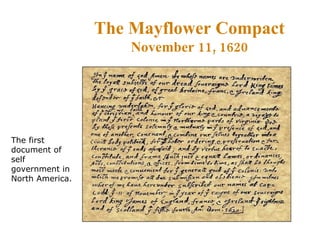 The Mayflower Compact
November 11, 1620
The first
document of
self
government in
North America.
In ye name of God Amen. We whose names are underwriten,
the loyall subjects of our dread soveraigne Lord King James
by ye grace of God, of great Britaine, franc, & Ireland king,
defender of ye faith, &c
Haveing undertaken, for ye glorie of God, and advancemente
of ye christian and honour of our king & countrie, a voyage to
plant ye first colonie in ye Northerne parts of Virginia. Doe
by these presents solemnly & mutualy in ye presence of God, and
one of another, covenant, & combine our selves togeather into a
civill body politick; for ordering, & preservation & fur=
therance of ye ends aforesaid; and by vertue hearof to enacte,
constitute, and frame shuch just & equall lawes, ordinances,
Acts, constitutions, & offices, from time to time, as shall be thought
most meete & convenient for ye generall good of ye Colonie: unto
which we promise all due submission and obedience. In witnes
wherof we have hereunder subscribed our names at Cap=
Codd ye .11. of November, in ye year of ye raigne of our soveraigne
Lord king James of England, france, & Ireland ye eighteenth
and of Scotland ye fiftie fourth. Ano: Dom. 1620.